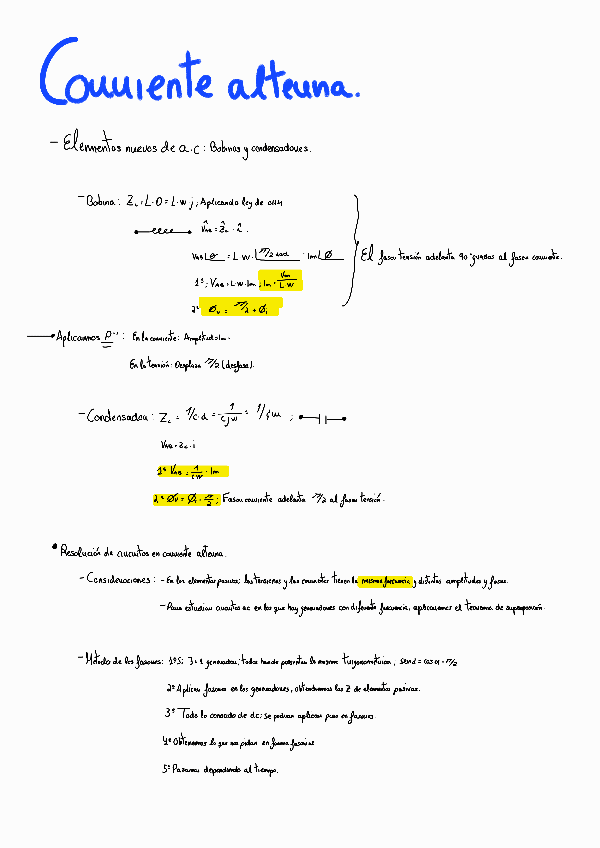 Corriente alterna.
- Elementos nuevos de a.c: Bobinas y condensadores.
- Bobina: Z_L = L·D = L·w j; Aplicando ley de ohm
V̂_AB = Ẑ_L · î.
V_AB ∠Ø = L w · ∠π/2 rad · Im ∠Ø
El fasor tensión adelanta 90 grados al fasor corriente.
1º; V_AB = L w · Im; Im = Vm / L w
2º Ø_v = π/2 + Ø_i
→ Aplicamos P⁻¹: En la corriente: Amplitud Im.
En la tensión: Desplaza π/2 (desfase).
- Condensador: Z_c = 1/c·d = 1/cjw = 1/jcw ;
V_AB = Z_c · i
1º V_AB = 1/cw · Im
2º Ø_v = Ø_i - π/2; Fasor corriente adelanta π/2 al fasor tensión.
• Resolución de circuitos en corriente alterna.
- Consideraciones: - En los elementos pasivos; las tensiones y las corrientes tienen la misma frecuencia y distintas amplitudes y fases.
- Para estudiar circuitos ac en los que hay generadores con diferente frecuencia, aplicaremos el teorema de superposición.
- Método de los fasores: 1º Si > 1 generador; todos han de presentar la misma trigonométrica, sen α = cos α - π/2
2º Aplicar fasores en los generadores, obtendremos las Z de elementos pasivos.
3º Todo lo conocido de dc; se podrán aplicar pero en fasores.
4º Obtenemos lo que nos pidan en forma fasorial
5º Pasamos dependiendo al tiempo.